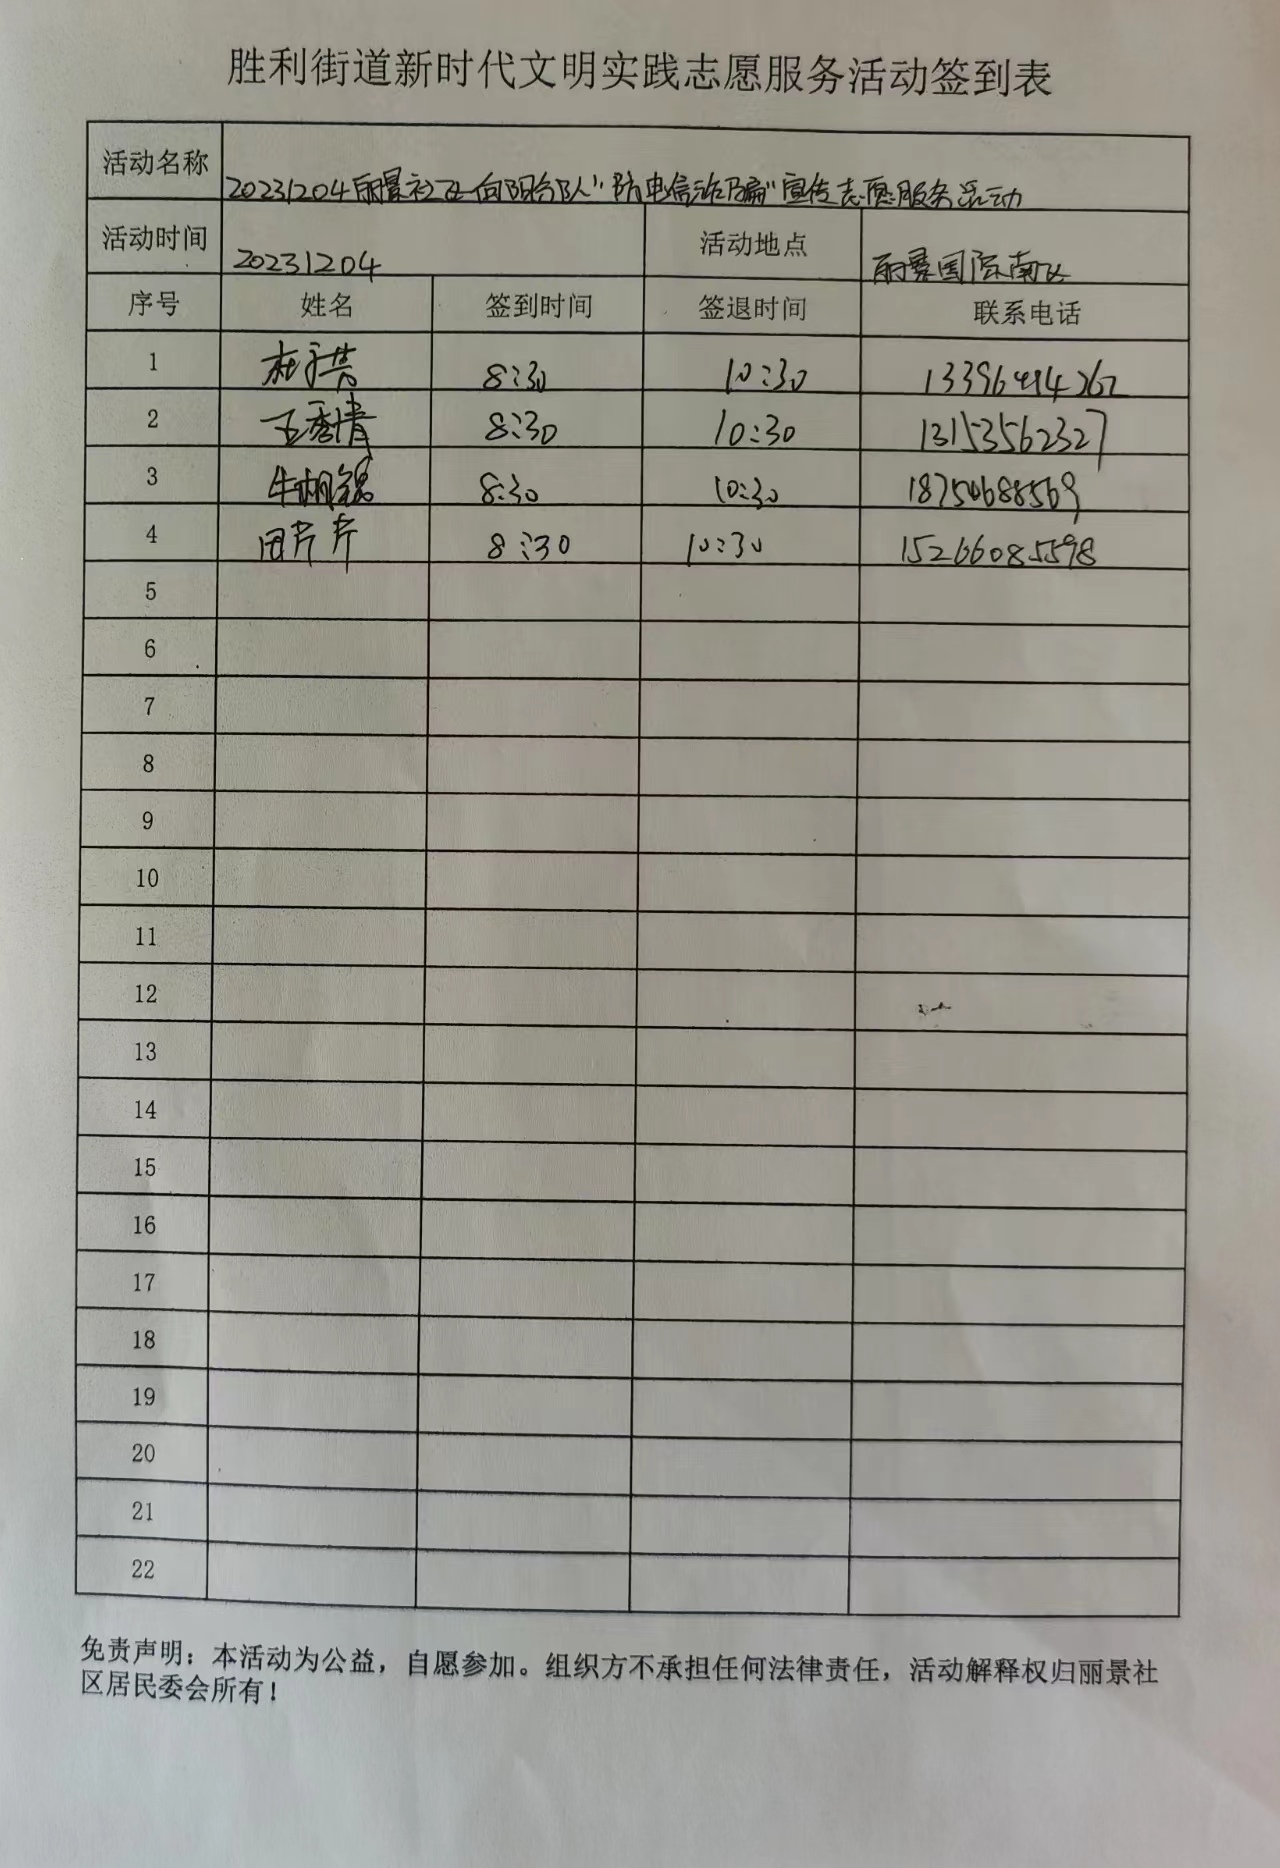 胜利街道新时代文明实践志愿服务活动签到表
活动名称 20231204丽景社区向阳分队“防电信诈骗”宣传志愿服务活动
活动时间 20231204 活动地点 丽景国际南区
序号 姓名 签到时间 签退时间 联系电话
1 8:30 10:30
2 王秀倩 8:30 10:30 13153562327
3 8:30 10:30 18750688569
4 田芹芹 8:30 10:30 15266085598
5
6
7
8
9
10
11
12
13
14
15
16
17
18
19
20
21
22
免责声明：本活动为公益，自愿参加。组织方不承担任何法律责任，活动解释权归丽景社
区居民委会所有！